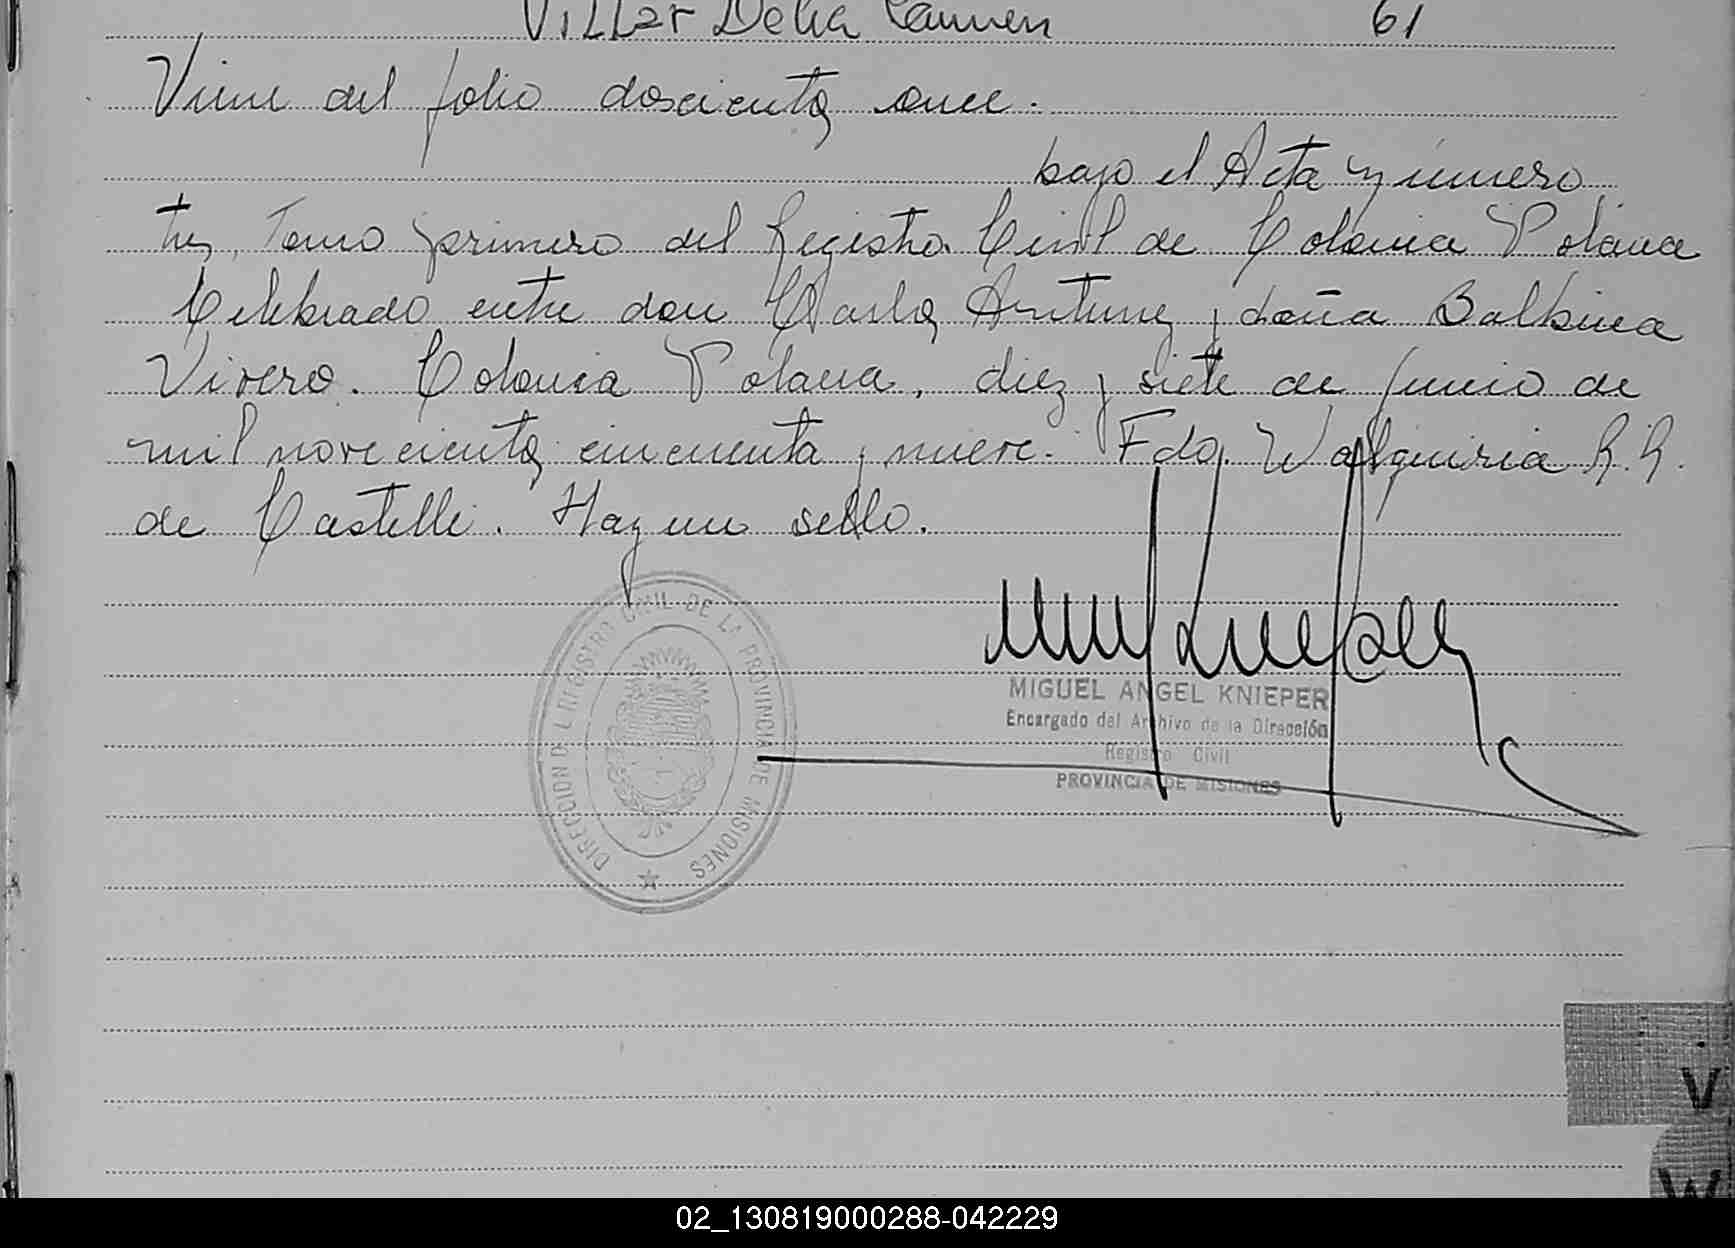 Villar Delia Carmen 61
Viene del folio doscientos once.
bajo el Acta número
tres, Tomo primero del Registro Civil de Colonia Polana
Celebrado entre don Carlos Antunez y doña Balbina
Vivero. Colonia Polana, diez y siete de junio de
mil novecientos cincuenta y nueve. Fdo. Walquiria R. R.
de Castelli. Hay un sello.
DIRECCION DEL REGISTRO CIVIL DE LA PROVINCIA DE MISIONES
MIGUEL ANGEL KNIEPER
Encargado del Archivo de la Dirección
Registro Civil
PROVINCIA DE MISIONES
V
W
02_130819000288-042229